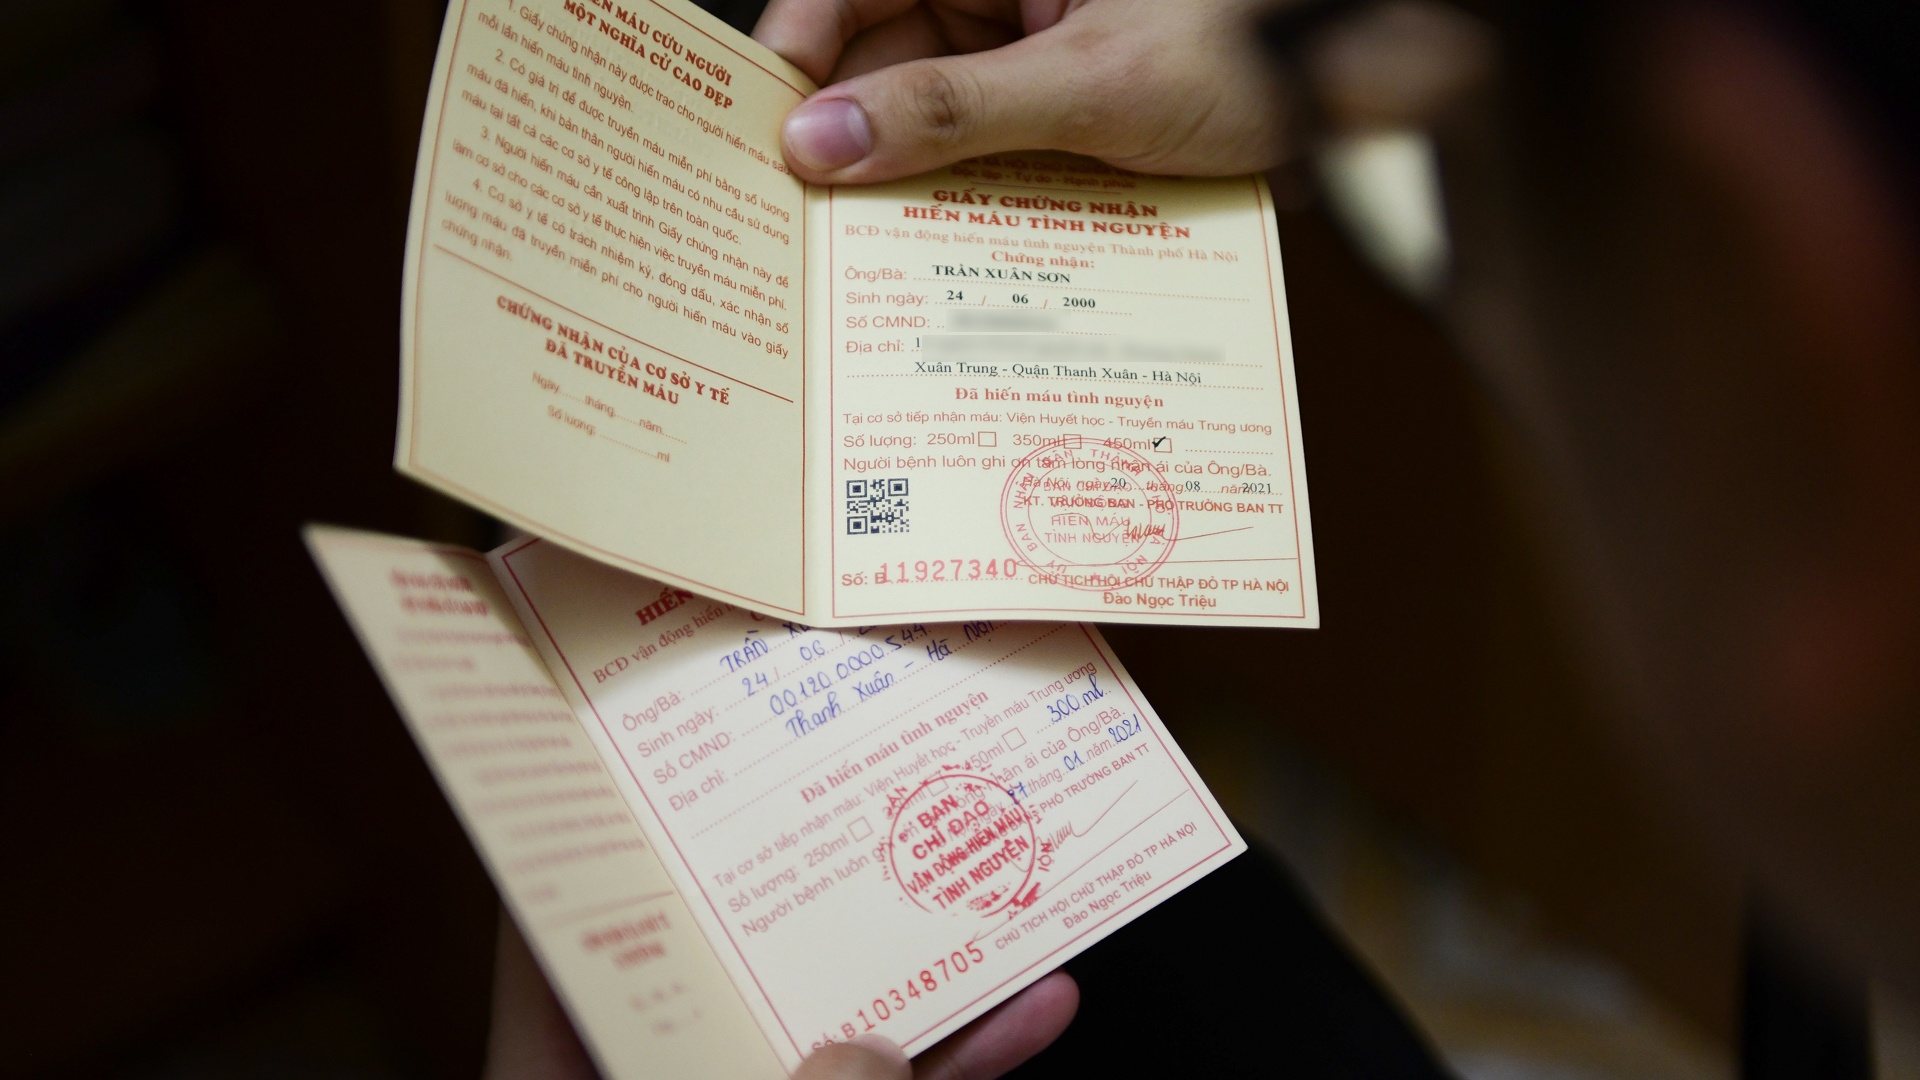 HIẾN MÁU CỨU NGƯỜI
MỘT NGHĨA CỬ CAO ĐẸP
1. Giấy chứng nhận này được trao cho người hiến máu sau
mỗi lần hiến máu tình nguyện.
2. Có giá trị để được truyền máu miễn phí bằng số lượng
máu đã hiến, khi bản thân người hiến máu có nhu cầu sử dụng
máu tại tất cả các cơ sở y tế công lập trên toàn quốc.
3. Người hiến máu cần xuất trình Giấy chứng nhận này để
làm cơ sở cho các cơ sở y tế thực hiện việc truyền máu miễn phí.
4. Cơ sở y tế có trách nhiệm ký, đóng dấu, xác nhận số
lượng máu đã truyền miễn phí cho người hiến máu vào giấy
chứng nhận.
CHỨNG NHẬN CỦA CƠ SỞ Y TẾ
ĐÃ TRUYỀN MÁU
Ngày......tháng......năm......
Số lượng: ..............ml
Độc lập - Tự do - Hạnh phúc
GIẤY CHỨNG NHẬN
HIẾN MÁU TÌNH NGUYỆN
BCĐ vận động hiến máu tình nguyện Thành phố Hà Nội
Chứng nhận:
Ông/Bà: TRẦN XUÂN SƠN
Sinh ngày: 24 / 06 / 2000
Số CMND:
Địa chỉ: 1
Xuân Trung - Quận Thanh Xuân - Hà Nội
Đã hiến máu tình nguyện
Tại cơ sở tiếp nhận máu: Viện Huyết học - Truyền máu Trung ương
Số lượng: 250ml 350ml 450ml ✓
Người bệnh luôn ghi ơn tấm lòng nhân ái của Ông/Bà.
Hà Nội, ngày 20 tháng 08 năm 2021
KT. TRƯỞNG BAN - PHÓ TRƯỞNG BAN TT
HIẾN MÁU
TÌNH NGUYỆN
Số: B 11927340
CHỦ TỊCH HỘI CHỮ THẬP ĐỎ TP HÀ NỘI
Đào Ngọc Triệu
HIẾN
BCĐ vận động hiến
Ông/Bà: TRẦN
Sinh ngày: 24 / 06
Số CMND: 00120 0000 544
Địa chỉ: Thanh Xuân - Hà Nội
Đã hiến máu tình nguyện
Tại cơ sở tiếp nhận máu: Viện Huyết học - Truyền máu Trung ương
Số lượng: 250ml 450ml 300 ml
Người bệnh luôn nhân ái của Ông/Bà.
tháng 01 năm 2021
PHÓ TRƯỞNG BAN TT
BAN
CHỈ ĐẠO
VẬN ĐỘNG HIẾN MÁU
TÌNH NGUYỆN
CHỦ TỊCH HỘI CHỮ THẬP ĐỎ TP HÀ NỘI
Đào Ngọc Triệu
Số: B 10348705